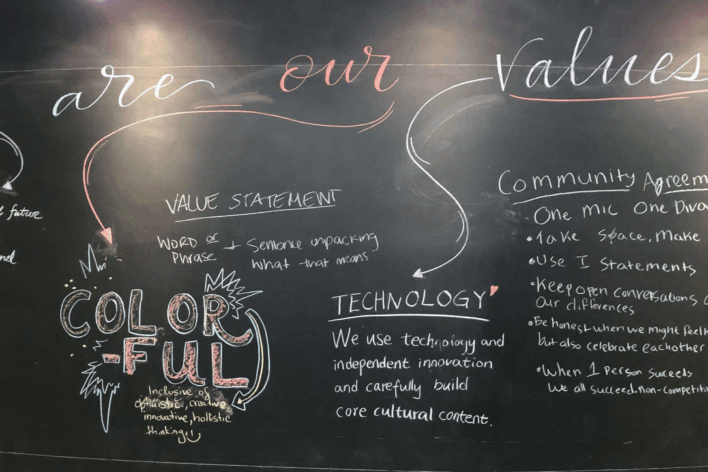 are our values
future
VALUE STATEMENT
WORD or + Sentence unpacking
PHRASE what that means
COLOR
-FUL
Inclusive of
creative
innovative, holistic
thinking
TECHNOLOGY
We use technology and
independent innovation
and carefully build
core cultural content.
Community Agreem
- One mic One Diva
• Take Space, Make
• Use I statements
• Keep open conversations
Our differences
• Be honest when we might feel
but also celebrate eachother
• When 1 person succeeds
We all succeed, non-competiti